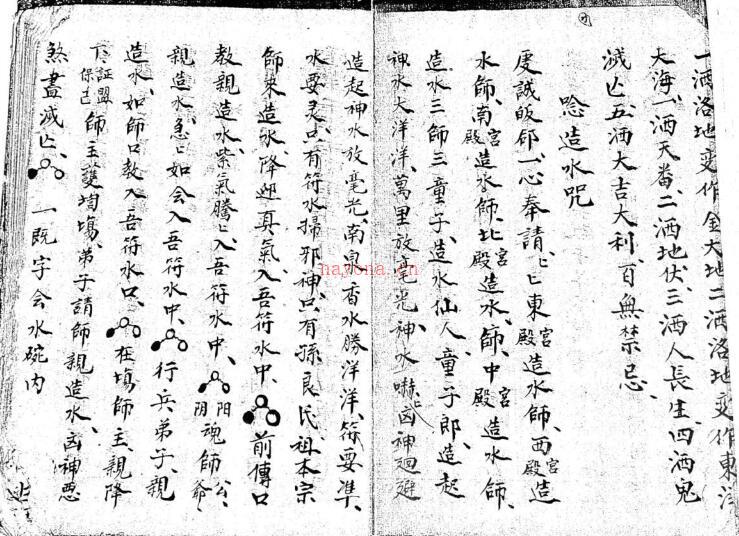 一洒洛地变作金大地二洒洛地变作東洋
大海、一洒天番、二洒地伏、三洒人長生、四洒鬼
滅亡、五洒大吉大利、百無禁忌、
唸造水咒
虔誠皈命、一心奉請、東宮殿造水師、西宮殿造
水師、南宮殿造水師、北宮殿造水師、中宮殿造水師、
造水三師三童子、造水仙人童子郎、造起
神水大洋洋、萬里放毫光、神水嚇凶神廻避
造起神水放毫光、南泉香水勝洋洋、符要準、
水要灵、只有符水掃邪神、只有孫良氏祖本宗
師、染造水、降迎真氣入吾符水中、前傳口
教親造水、紫氣騰入吾符水中、阳阴魂師公爷
親造水、急如会入吾符水中、行兵弟子、親
造水、如師口教入吾符水口、在塲師主、親降
下証盟保古師主護塲、弟子請師親造水、凶神惡
煞盡滅亡、一既字会水碗内
nayona.cn